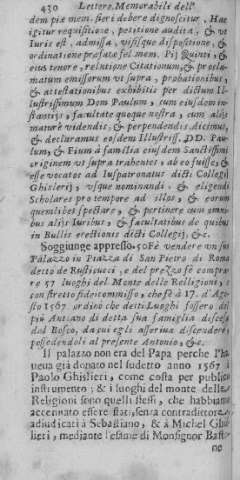 430 Lettere Memorabile dell'
dem piæ mem. fieri debere dignoscitur, Hac
igitur requisitione, petitione audita, & vt
Iuris est, admissa, visisque dispositione, &
ordinatione præfatæ fel. mem. Pij Quinti, &
eius tenore, relatione Citationum, & procla-
matum emissorum vt supra, probationibus,
& attestationibus exhibitis per dictum Il-
lustrissimum Dom Paulum, cum eiusdem in-
stantijs, facultate quoque nostra, cum alijs
maturè videndis, & perpendendis Dicimus,
& declaramus eosdem Illustriss. DD. Pau-
lum, & eum à familia eiusdem Sanctissimi
originem vt supra trahentes, ab eo fuisse, &
esse vocatos ad Iuspatronatus dicti Collegij
Ghislerij, vsque nominandi, & eligendi
Scholares pro tempore ad illos, & eorum
quemlibet spectare, & pertinere cum omni-
bus alijs Iuribus, & facultatibus de quibus
in Bullis erectionis dicti Collegij, &c.
Soggiunge appresso. 50Fè vendere vn suo
Palazzo in Piazza di San Pietro di Roma
detto de Rusticucci, e del prezzo fè compra-
re 57 luoghi del Monte delle Relligioni, e
con stretto fidecommisso, che fè à 17. d'Ago-
sto 1567 ordinò che detti Luoghi fossero del
più Antiano di detta sua famiglia discesa
dal Bosco, da cui egli asseriua discendere,
possedendoli al presente Antonio, &c.
Il palazzo non era del Papa perche l'ha-
ueua già donato nel sudetto anno 1567 à
Paolo Ghislieri, come costa per publico
instrumento; & i luoghi del monte delle
Religioni sono quelli stessi, che habbiamo
accennato essere stati, senza contradittore
adiudicati à Sebastiano, & à Michel Ghis-
lieri, mediante l'estone di Monsignor Bast-
ne